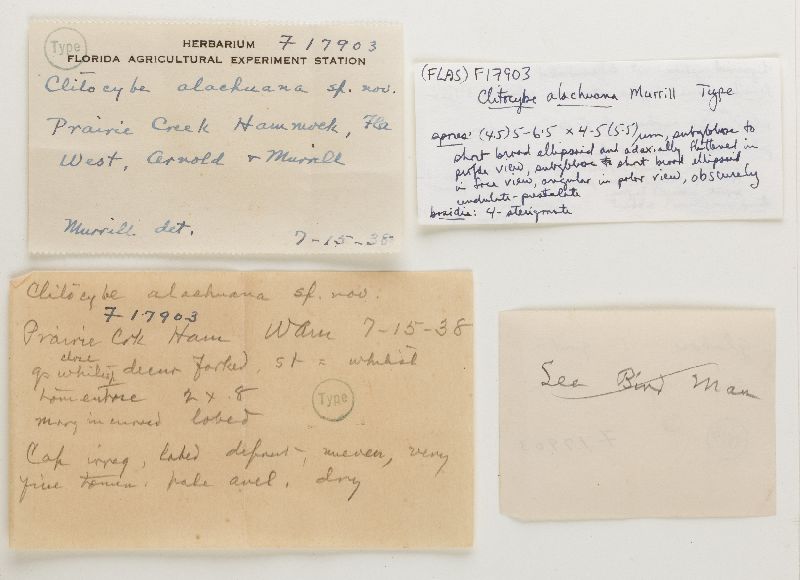 Type
HERBARIUM F 17903
FLORIDA AGRICULTURAL EXPERIMENT STATION
Clitocybe alachuana sp. nov.
Prairie Creek Hammock, Fla
West, Arnold & Murrill
Murrill det.
7-15-38
(FLAS) F17903
Clitocybe alachuana Murrill Type
spores: (4.5) 5-6.5 x 4-5 (5.5) µm, subglobose to
short broad ellipsoid and adaxially flattened in
profile view, subglobose to short broad ellipsoid
in face view, angular in polar view, obscurely
undulate-pustulate
basidia: 4-sterigmate
Clitocybe alachuana sp. nov.
F 17903
Prairie Crk Ham WAM 7-15-38
close
gs whitish decur forked, st = whitish
tomentose 2 x .8
Type
marg incurved lobed
Cap irreg, lobed depressed, uneven, very
fine tomen. pale avel. dry
See Bird Man